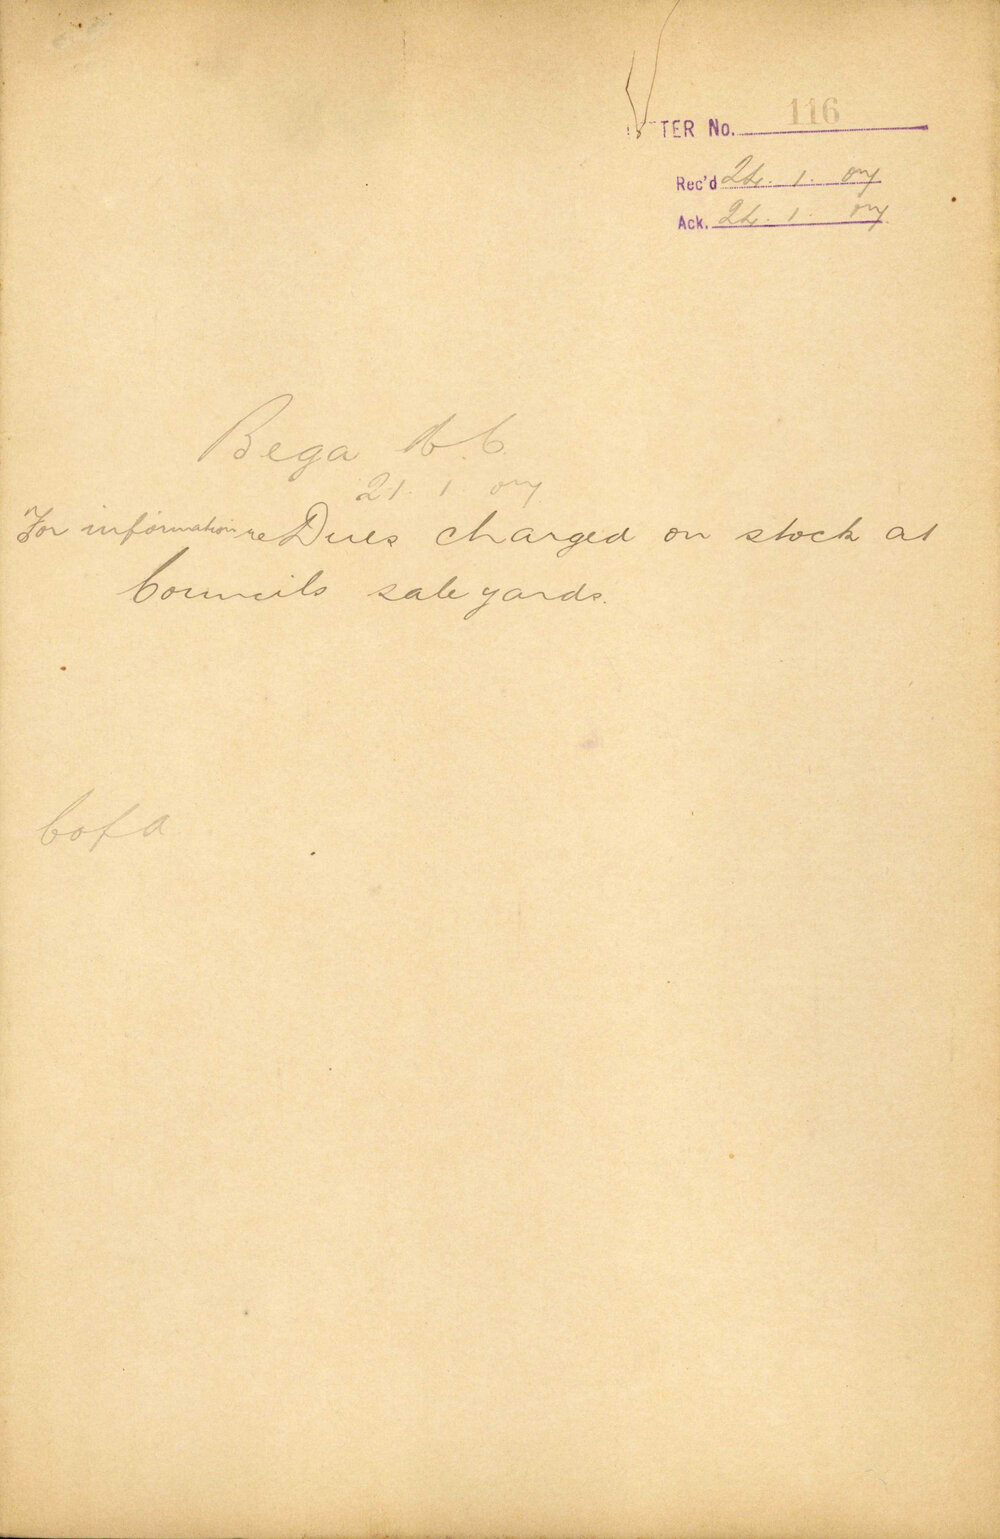 TTER No. 116
Rec'd 24. 1. 07
Ack. 24. 1. 07
Bega M. C.
21. 1. 07
For information re Dues charged on stock at
Councils sale yards.
C of A